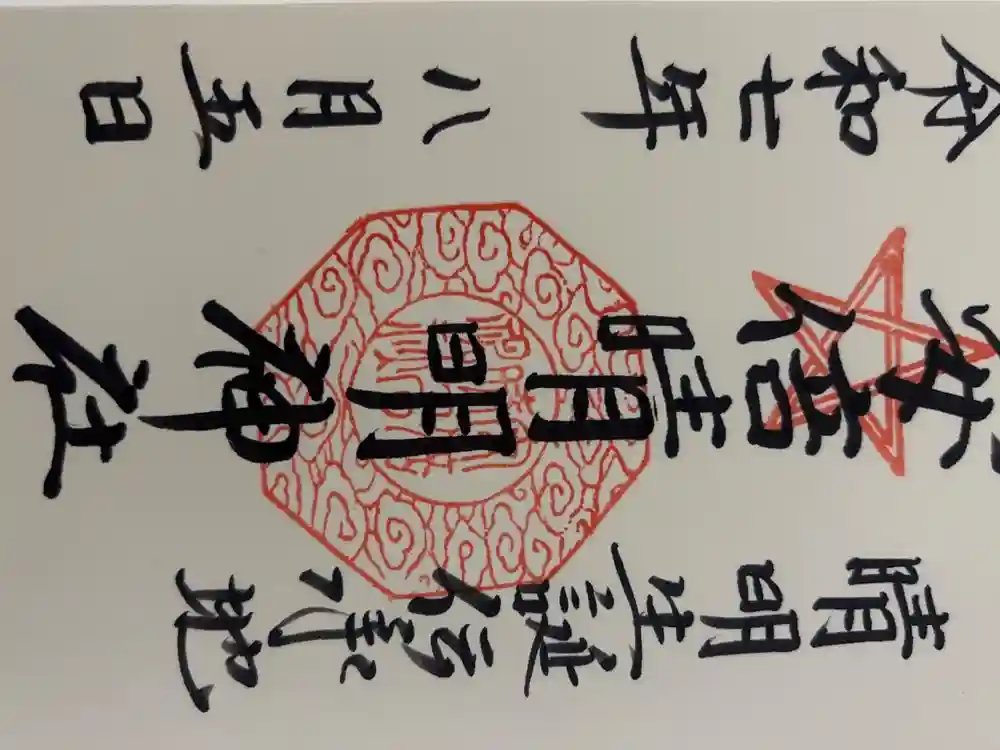 晴明生誕伝承地
安倍晴明神社
令和七年八月五日